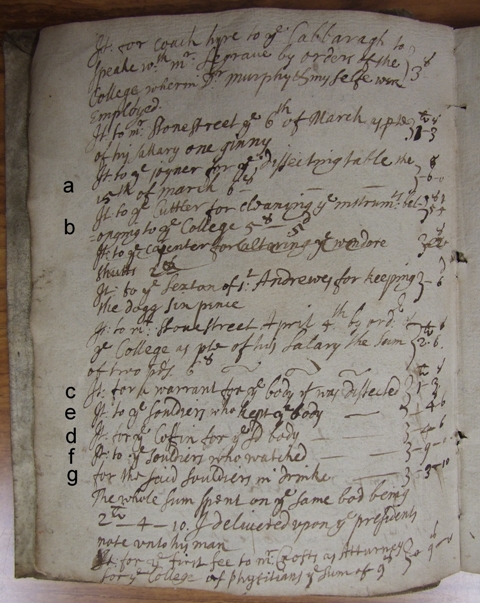 It: for coach hyre to ye Sabbaragh to
speake wth mr Segrave by orders of the
College wherin Dr murphy & my selfe were 3 s
Employed.
It: to mr Stonestreet ye 6th of March as pte
of his sallary one ginny 1-3
a It: to ye joyner for ye dissecting table the
15th of march 6 s
b It: to ye Cuttler for cleansing ye instrumts bel-
=onging to ye College 5 s
It: to ye carpenter for altering ye
It: to ye Sexton of st Andrewes for keeping
the doggs in
It: to mr Stonestreet April 4th by ordr
ye College as pte of his Salary the Sum 2-6
of two pds 6 s
c It: for a warrant for ye body yt was dissected 1-3
e It: to ye souldiers who kept ye body 4 6
d It: for ye Coffin for ye sd body 4-6
f It: to ye souldiers who watched
g for the said souldiers in drinke 3-10
The whole sum spent on ye same bod being
2 - 4 - 10. I delivered upon ye presidents
note unto his man
It: for ye first fee to mr Crofts as Atturney
for ye College of physitians ye Sum of 9 s